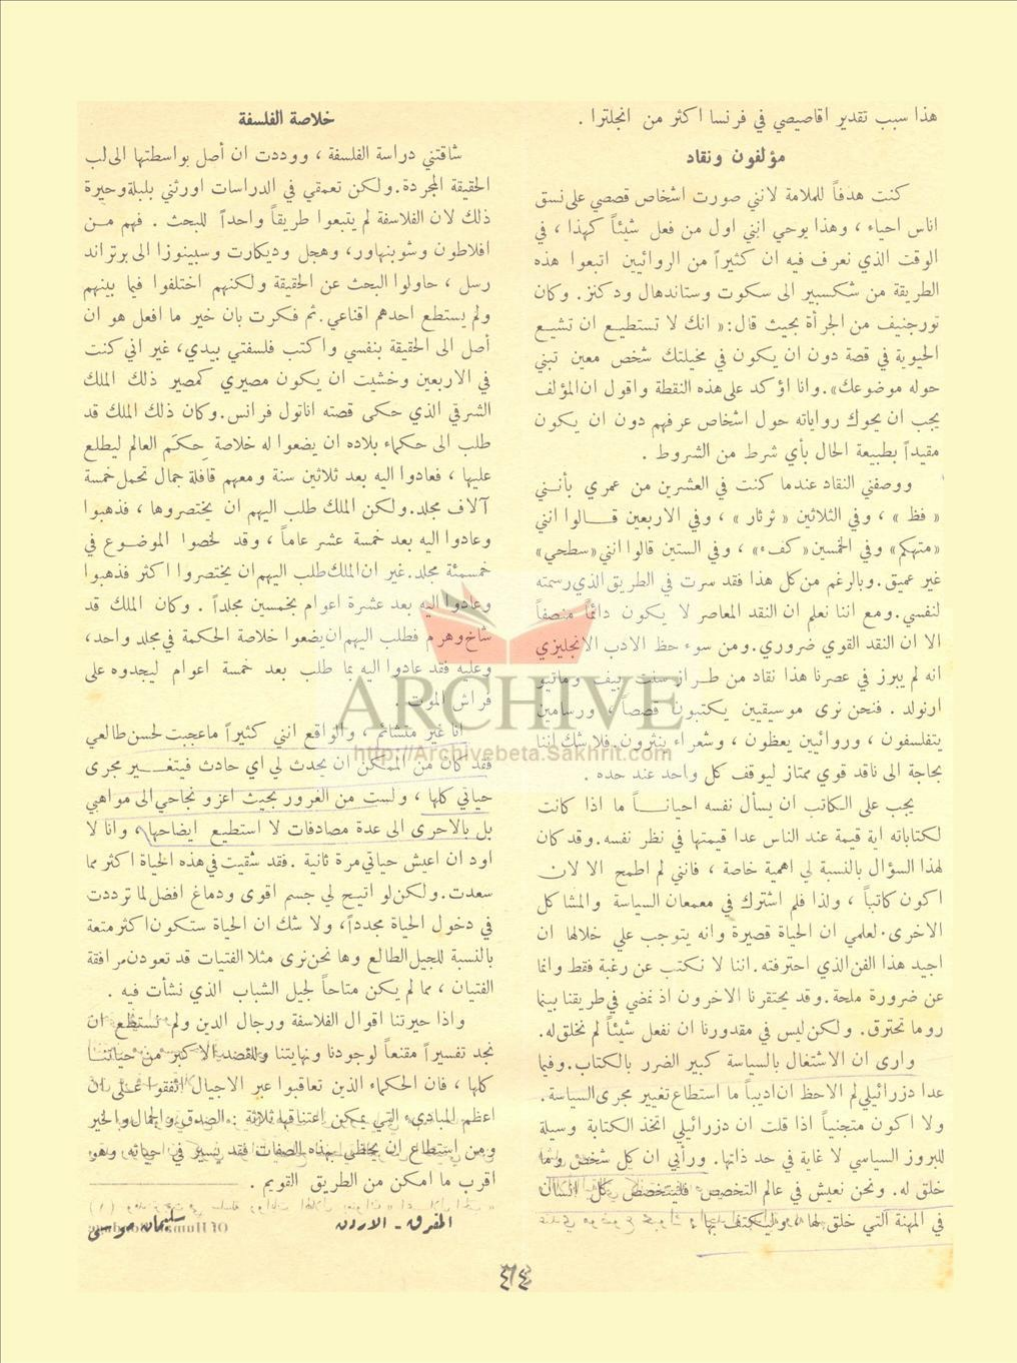 هذا سبب تقدير اقاصيصي في فرنسا اكثر من انجلترا .
مؤلفون ونقاد
كنت هدفاً للملامة لانني صورت اشخاص قصصي على نسق
اناس احياء ، وهذا يوحي انني اول من فعل شيئاً كهذا ، في
الوقت الذي نعرف فيه ان كثيراً من الروائيين اتبعوا هذه
الطريقة من شكسبير الى سكوت وستاندهال ودكنز . وكان
تورجنيف من الجرأة بحيث قال : « انك لا تستطيع ان تشيع
الحيوية في قصة دون ان يكون في مخيلتك شخص معين تبني
حوله موضوعك » . وانا اؤكد على هذه النقطة واقول ان المؤلف
يجب ان يحوك رواياته حول اشخاص عرفهم دون ان يكون
مقيداً بطبيعة الحال بأي شرط من الشروط .
ووصفني النقاد عندما كنت في العشرين من عمري بأنني
« فظ » ، وفي الثلاثين « ثرثار » ، وفي الاربعين قالوا انني
« متهكم » وفي الخمسين « كفء » ، وفي الستين قالوا انني « سطحي »
غير عميق . وبالرغم من كل هذا فقد سرت في الطريق الذي رسمته
لنفسي . ومع اننا نعلم ان النقد المعاصر لا يكون دائماً منصفاً
الا ان النقد القوي ضروري . ومن سوء حظ الادب الانجليزي
انه لم يبرز في عصرنا هذا نقاد من طراز سنت بيف وماتيو
ارنولد . فنحن نرى موسيقيين يكتبون قصصاً ، ورسامين
يتفلسفون ، وروائيين يعظون ، وشعراء ينثرون . فلا شك اننا
بحاجة الى ناقد قوي ممتاز ليوقف كل واحد عند حده .
يجب على الكاتب ان يسأل نفسه احياناً ما اذا كانت
لكتاباته اية قيمة عند الناس عدا قيمتها في نظر نفسه . وقد كان
لهذا السؤال بالنسبة لي اهمية خاصة ، فانني لم اطمح الا لان
اكون كاتباً ، ولذا فلم اشترك في معمعان السياسة والمشاكل
الاخرى . لعلمي ان الحياة قصيرة وانه يتوجب علي خلالها ان
اجيد هذا الفن الذي احترفته . اننا لا نكتب عن رغبة فقط وانما
عن ضرورة ملحة . وقد يحتقرنا الاخرون اذ نمضي في طريقنا بينما
روما تحترق . ولكن ليس في مقدورنا ان نفعل شيئاً لم نخلق له .
وارى ان الاشتغال بالسياسة كبير الضرر بالكتاب . وفيما
عدا دزرائيلي لم الاحظ ان اديباً ما استطاع تغيير مجرى السياسة .
ولا اكون متجنياً اذا قلت ان دزرائيلي اتخذ الكتابة وسيلة
للبروز السياسي لا غاية في حد ذاتها . ورأيي ان كل شخص وما
خلق له . ونحن نعيش في عالم التخصص فليتخصص كل انسان
في المهنة التي خلق لها ، وليكتف بها .
خلاصة الفلسفة
شاقتني دراسة الفلسفة ، ووددت ان أصل بواسطتها الى لب
الحقيقة المجردة . ولكن تعمقي في الدراسات اورثني بلبلة وحيرة
ذلك لان الفلاسفة لم يتبعوا طريقاً واحداً للبحث . فهم من
افلاطون وشوبنهاور ، وهجل وديكارت وسبينوزا الى برتراند
رسل ، حاولوا البحث عن الحقيقة ولكنهم اختلفوا فيما بينهم
ولم يستطع احدهم اقناعي . ثم فكرت بان خير ما افعل هو ان
أصل الى الحقيقة بنفسي واكتب فلسفتي بيدي ، غير اني كنت
في الاربعين وخشيت ان يكون مصيري كمصير ذلك الملك
الشرقي الذي حكى قصته اناتول فرانس . وكان ذلك الملك قد
طلب الى حكماء بلاده ان يضعوا له خلاصة حِكَم العالم ليطلع
عليها ، فعادوا اليه بعد ثلاثين سنة ومعهم قافلة جمال تحمل خمسة
آلاف مجلد . ولكن الملك طلب اليهم ان يختصروها ، فذهبوا
وعادوا اليه بعد خمسة عشر عاماً ، وقد لخصوا الموضوع في
خمسمئة مجلد . غير ان الملك طلب اليهم ان يختصروا اكثر فذهبوا
وعادوا اليه بعد عشرة اعوام بخمسين مجلداً . وكان الملك قد
شاخ وهرم فطلب اليهم ان يضعوا خلاصة الحكمة في مجلد واحد ،
وعليه فقد عادوا اليه بما طلب بعد خمسة اعوام ليجدوه على
فراش الموت .
انا غير متشائم ، والواقع انني كثيراً ما عجبت لحسن طالعي
فقد كان من الممكن ان يحدث لي اي حادث فيتغير مجرى
حياتي كلها ، ولست من الغرور بحيث اعزو نجاحي الى مواهبي
بل بالاحرى الى عدة مصادفات لا استطيع ايضاحها ، وانا لا
اود ان اعيش حياتي مرة ثانية . فقد شقيت في هذه الحياة اكثر مما
سعدت . ولكن لو اتيح لي جسم اقوى ودماغ افضل لما ترددت
في دخول الحياة مجدداً ، ولا شك ان الحياة ستكون اكثر متعة
بالنسبة للجيل الطالع وها نحن نرى مثلا الفتيات قد تعودن مرافقة
الفتيان ، مما لم يكن متاحاً لجيل الشباب الذي نشأت فيه .
واذا حيرتنا اقوال الفلاسفة ورجال الدين ولم نستطع ان
نجد تفسيراً مقنعاً لوجودنا ونهايتنا وللقصد الاكبر من حياتنا
كلها ، فان الحكماء الذين تعاقبوا عبر الاجيال اتفقوا على ان
اعظم المبادىء التي يمكن اعتناقها ثلاثة : الصدق والجمال والخير
ومن استطاع ان يحظى بهذه الصفات فقد يسير في حياته وهو
اقرب ما امكن من الطريق القويم .
المفرق - الاردن سليمان موسى
ARCHIVE
http://Archivebeta.Sakhrit.com
٤٦٤